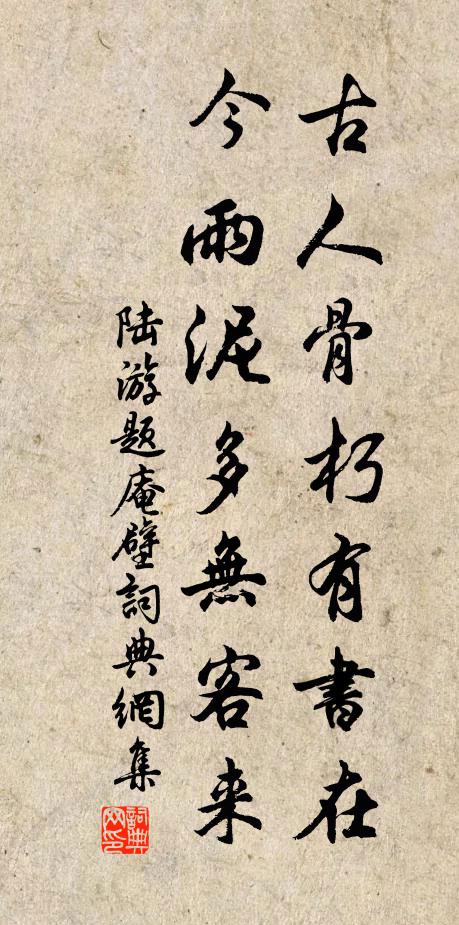 古人骨朽有書在
今雨泥多無客来
陸游題庵壁詞典網集
詞典网印